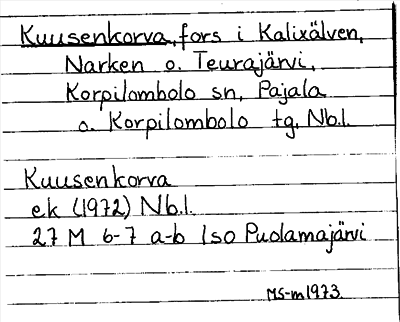 Kuusenkorva, fors i Kalixälven,
Narken o. Teurajärvi,
Korpilombolo sn, Pajala
o. Korpilombolo tg, Nb.l.
Kuusenkorva
ek (1972) Nb.l.
27 M 6-7 a-b Iso Puolamajärvi
MS-m1973.